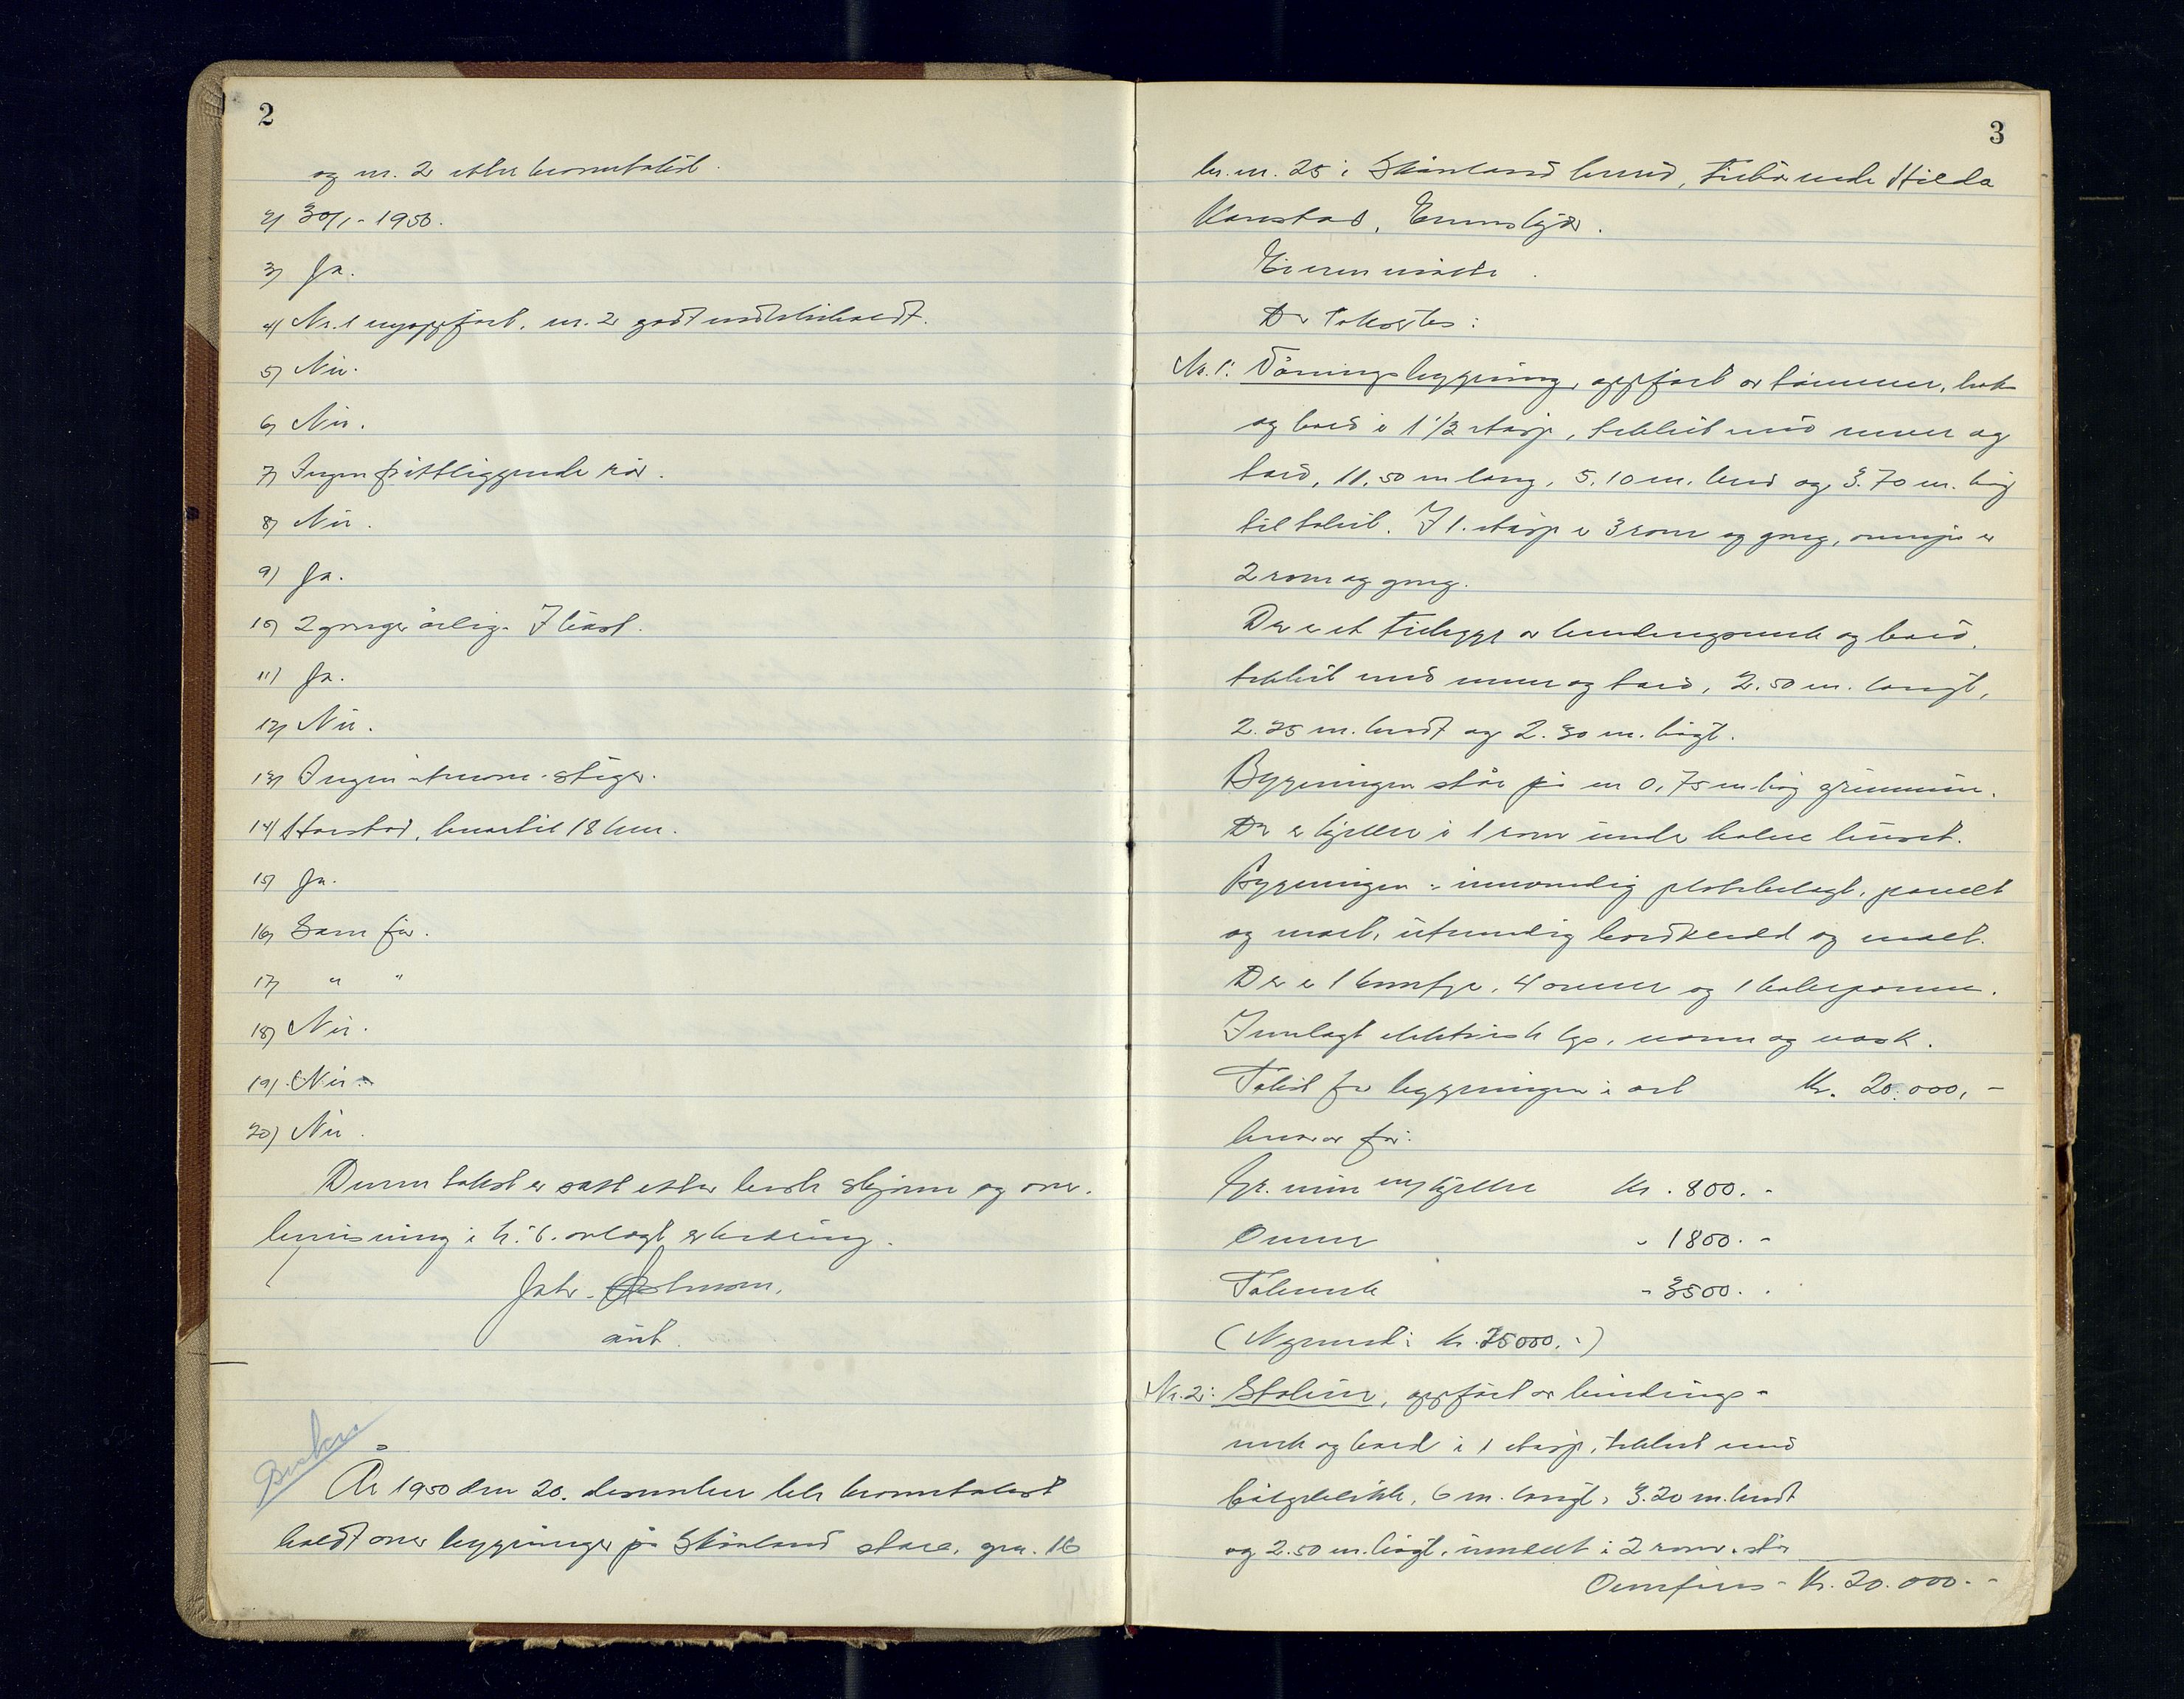 2
og nr. 2 etter branntakst.
2) 30/1-1950.
3) Ja.
4) Nr. 1 nyoppført, nr. 2 godt vedlikeholdt.
5) Nei.
6) Nei.
7) Ingen frittliggende rør.
8) Nei.
9) Ja.
10) 2 ganger årlig. I høst.
11) Ja.
12) Nei.
13) Ingen -stiger.
14) Harstad, hvortil 18 km.
15) Ja.
16) Som før.
17) " "
18) Nei.
19) Nei.
20) Nei.
Denne takst er satt etter beste skjønn og over-
bevisning i h. t. avlagt erklæring.
Joh.
Borken
År 1950 den 20. desember ble branntakst
holdt over bygninger på Skånland gnr. 16
3
br. nr. 25 i Skånland herred, tilhørende Hilda
Kanstad, Evenskjær.
Eieren møtte.
Der takertes:
Nr. 1: Våningsbygning, oppført av tømmer, bok
og bord i 1 1/2 etasje, tekket med never og
torv, 11.50 m lang, 5.10 m. bred og 3.70 m. høy
til takut. I 1. etasje er 3 rom og gang, ovenpå er
2 rom og gang.
Der er et tilbygg av bindingsverk og bord,
tekket med never og torv, 2.50 m. langt,
2.25 m. bredt og 2.30 m. høgt.
Bygningen står på en 0,75 m høg grunnmur.
Der er kjeller i 1 rom under halve huset.
Bygningen er innvendig platebelagt, panelt
og malt, utvendig bordkledd og malt.
Der er 1 komfyr, 4 ovner og 1 kokepanne.
Innlagt elektrisk lys, vann og vask.
Takst for bygningen i alt Kr. 20.000,-
hvorav for:
Gr. mur m/ kjeller Kr. 800.-
Ovner - 1800.-
Takverk - 3500.-
(Nyverdi: Kr. 25000.-)
Nr. 2: Stabur, oppført av bindings-
verk og bord i 1 etasje, tekket med
bølgeblikk, 6 m. langt, 3.20 m. bredt
og 2.50 m. høgt, innredet i 2 rom, står
Overføres - Kr. 20.000.-